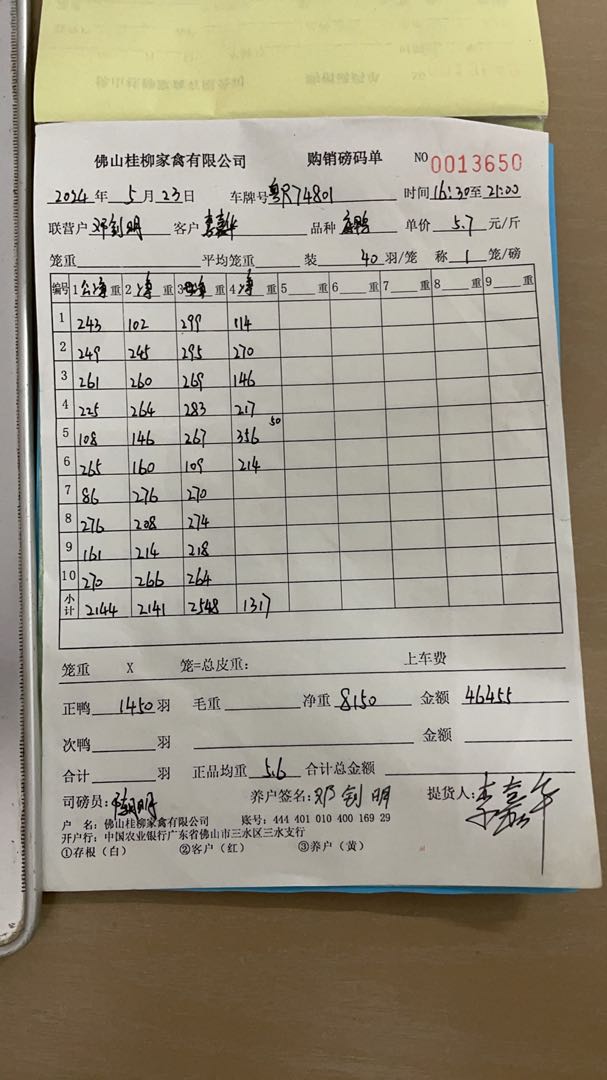 佛山桂柳家禽有限公司 购销磅码单 NO 0013650
2024年 5月23日 车牌号粤R74801 时间16:30至21:00
联营户 邓创明 客户 品种 单价 5.7 元/斤
笼重 平均笼重 装 40 羽/笼 称 1 笼/磅
编号 1公净重 2净重 3母净重 4净重 5重 6重 7重 8重 9重
1 243 102 299 114
2 249 245 295 270
3 261 260 269 146
4 225 264 283 217
5 108 146 267 356 50
6 265 160 109 214
7 86 276 270
8 276 208 274
9 161 214 218
10 270 266 264
小计 2144 2141 2548 1317
笼重 X 笼=总皮重: 上车费
正鸭 1450 羽 毛重 净重 8150 金额 46455
次鸭 羽 金额
合计 羽 正品均重 5.6 合计总金额
司磅员: 养户签名:邓创明 提货人:李嘉华
户 名:佛山桂柳家禽有限公司 账号:444 401 010 400 169 29
开户行:中国农业银行广东省佛山市三水区三水支行
①存根(白) ②客户(红) ③养户(黄)